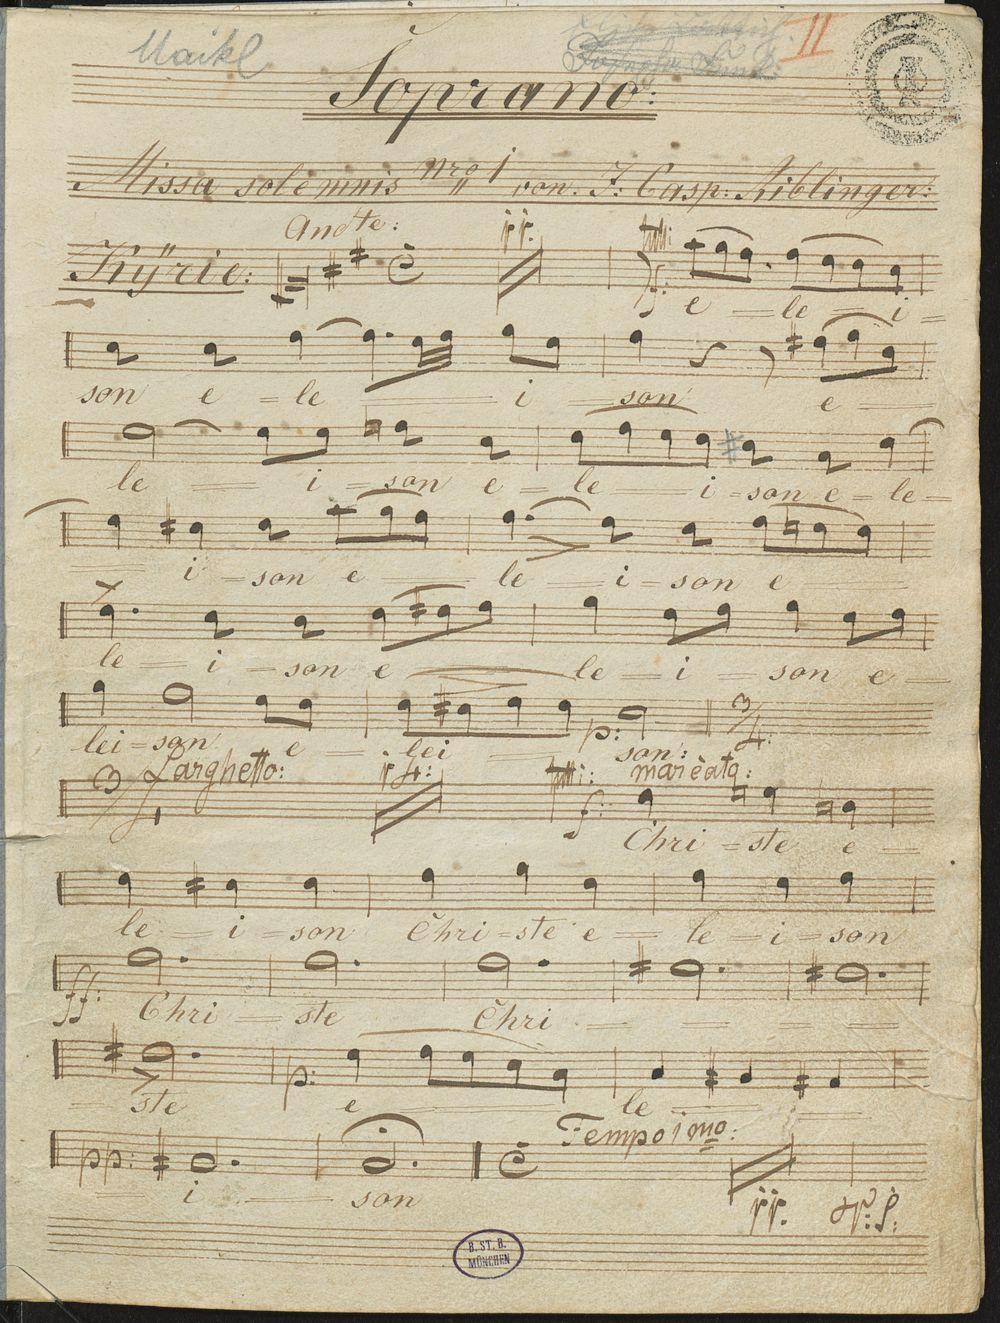 Maikl
II
Soprano:
Missa solemnis Nro 1 von J: Casp: Aiblinger:
Andte:
Kÿrie: tutti:
f:
e le i
son e le i son e
le i son e le i son e le
i son e le i son e
le i son e le i son e
lei son e lei son:
p: 3/4
Larghetto: 4: tutti: marcato:
3/4 f:
Chri ste e
le i son Chri ste e le i son
ff: Chri ste Chri
p:
ste e le
Tempo 1mo:
pp:
i son
V: S:
B. ST. B.
MÜNCHEN